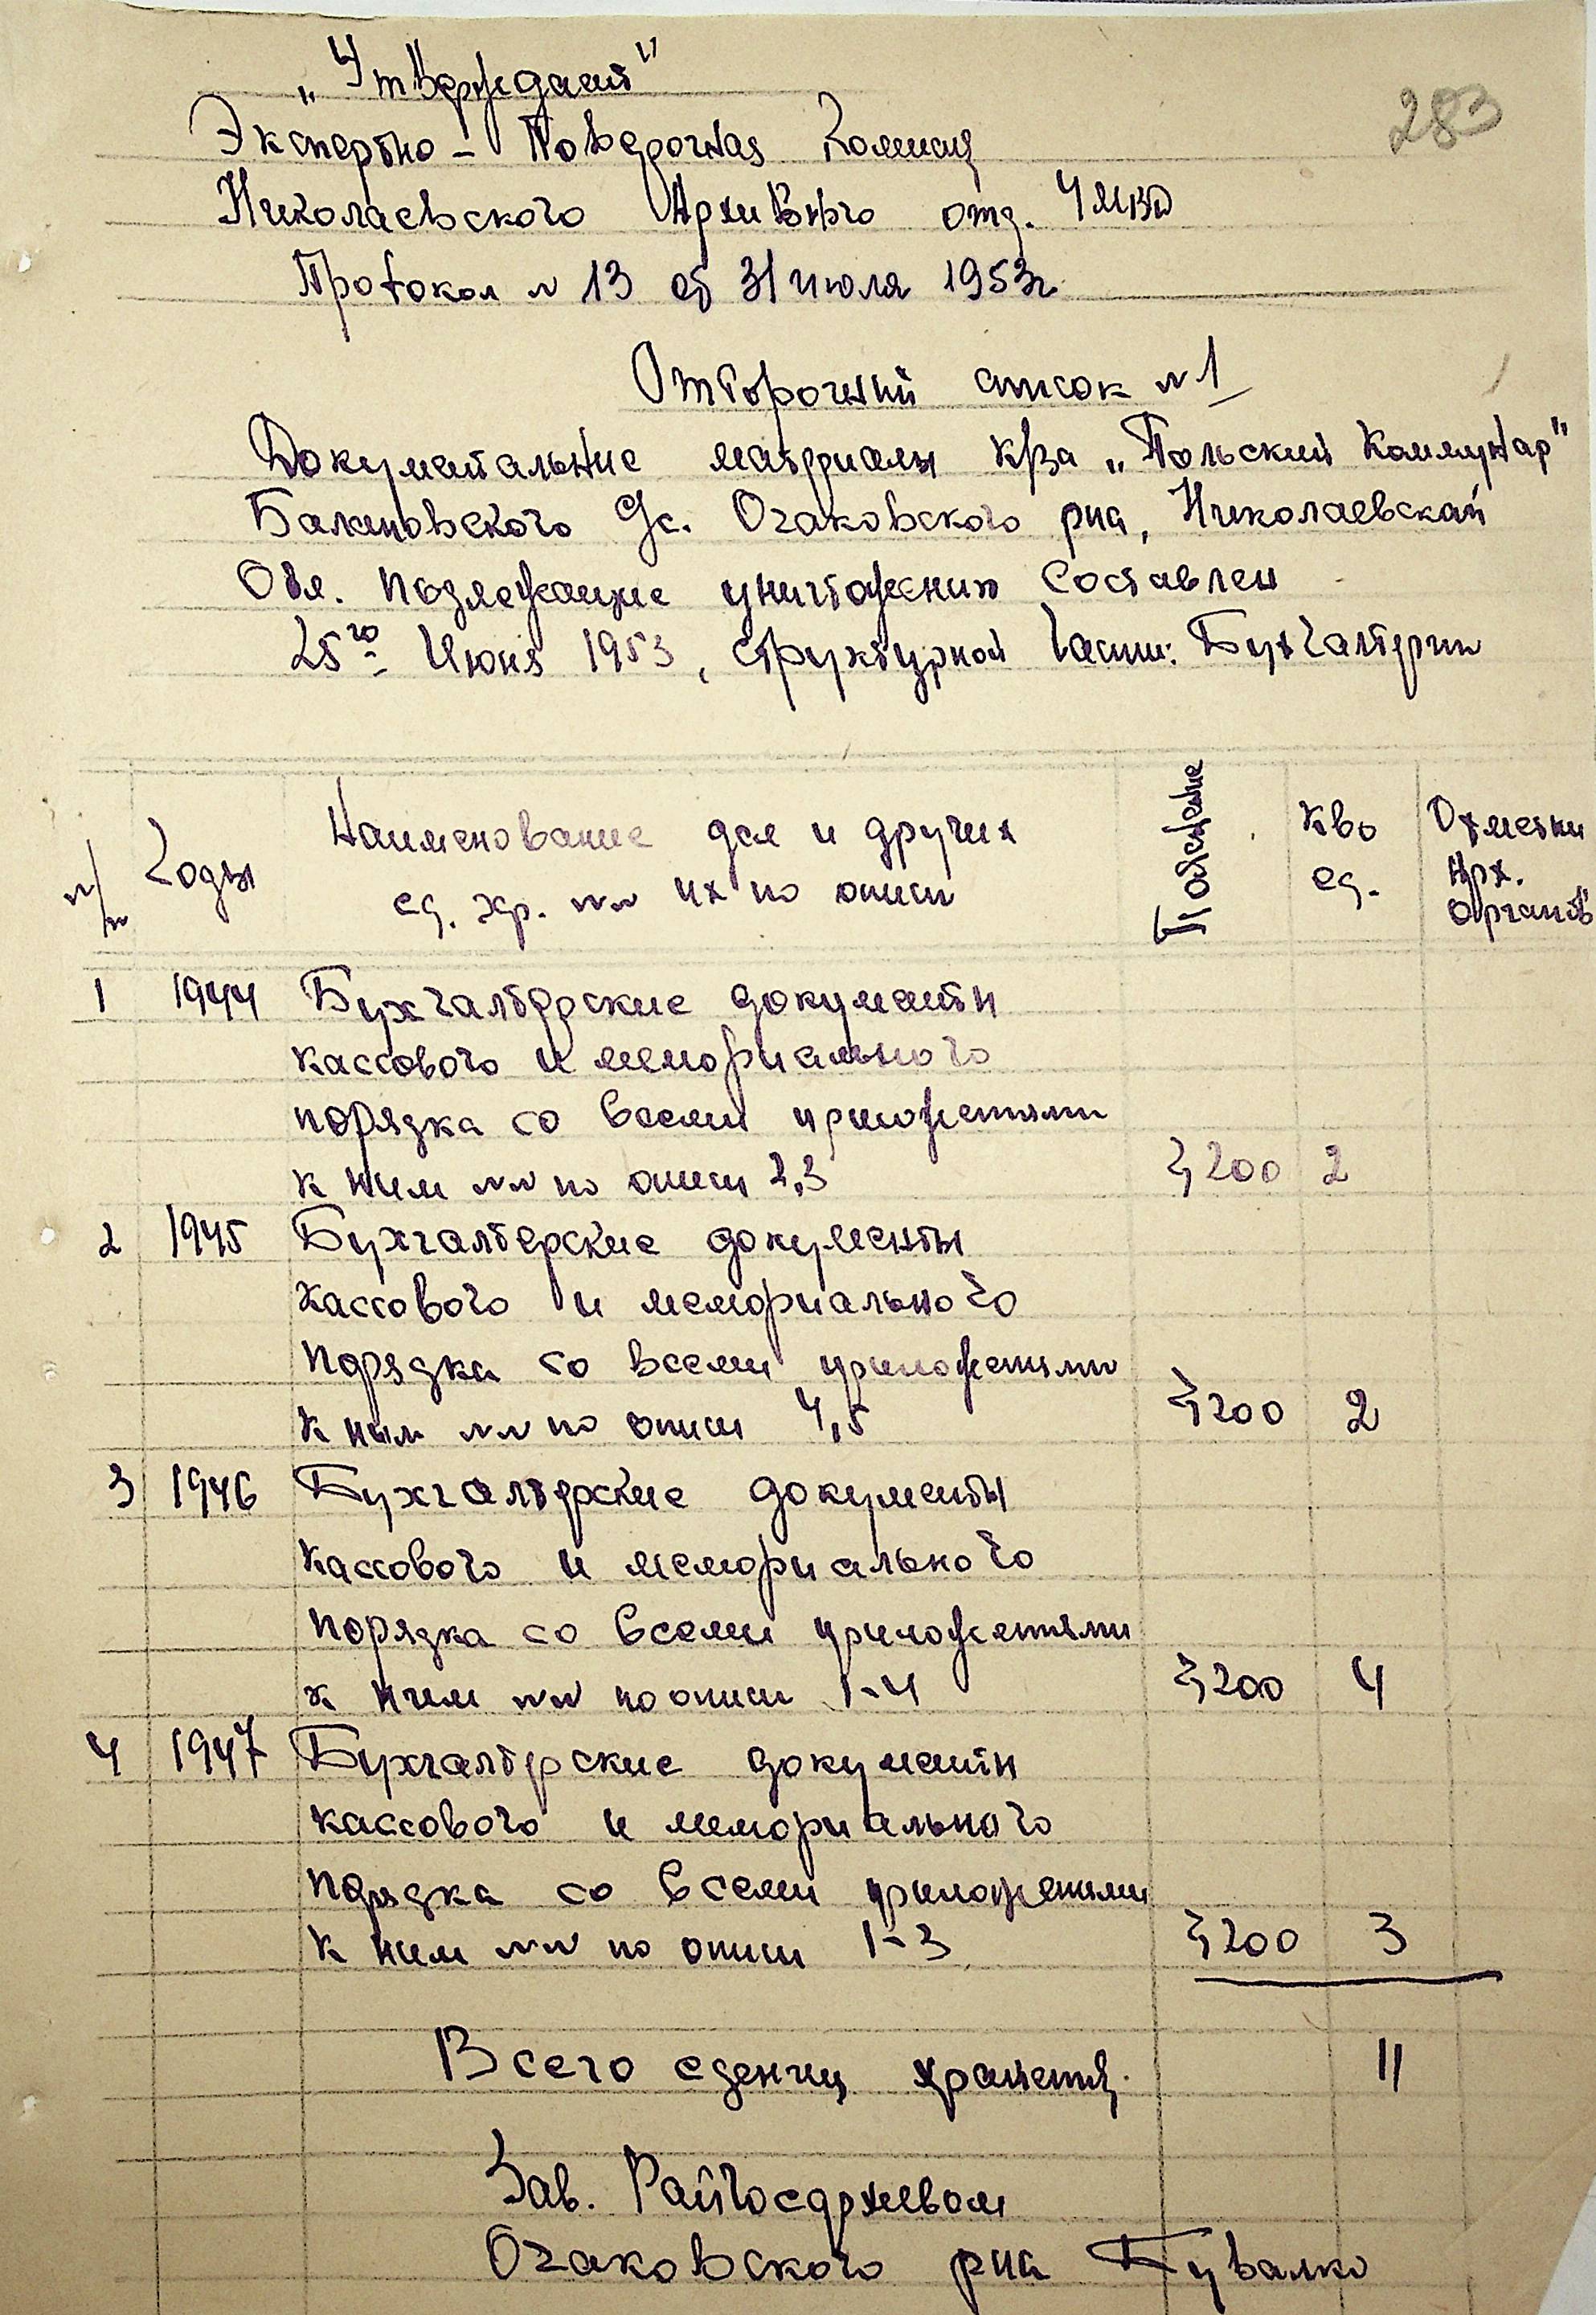 „Утверждает"
283
Экспертно - Поверочная Комисия
Николаевского Архивного отд. УМВД
Протокол № 13 от 31 июля 1953г.
Отборочний список № 1
Документальние матерриалы к/за „Польский Коммунар"
Балановского С/с. Очаковского рна, Николаевской
Обл. подлежащие уничтожению составлен
25го Июня 1953, структурной части: Бухгалтерии
№/№ Годы Наименование дел и других ед. хр. №№ их по описи
Кво ед. Отметки Арх. Органов
1 1944 Бухгалтерские документи
кассового и мемориального
порядка со всеми приложениями
к ним №№ по описи 2,3 § 200 2
2 1945 Бухгалтерские документы
кассового и мемориального
порядка со всеми приложениями
к ным №№ по описи 4,5 § 200 2
3 1946 Бухгалтерские документы
кассового и мемориального
порядка со всеми приложениями
к ним №№ по описи 1-4 § 200 4
4 1947 Бухгалтерские документи
кассового и мемориального
порядка со всеми приложениями
к ним №№ по описи 1-3 § 200 3
Всего едениц хранения. 11
Зав. Райгосархивом
Очаковского рна Бувалко